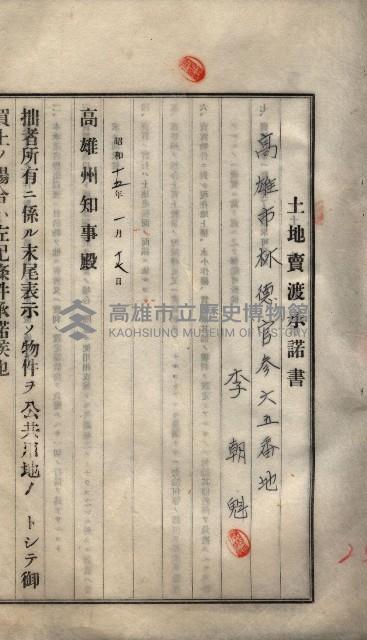 土地賣渡承諾書
高雄市林德官參六五番地
李朝魁
昭和十五年一月十七日
高雄州知事殿
拙者所有ニ係ル末尾表示ノ物件ヲ公共用地ノトシテ御
買上ノ場合ハ左記條件承諾候也
高雄市立歷史博物館
KAOHSIUNG MUSEUM OF HISTORY